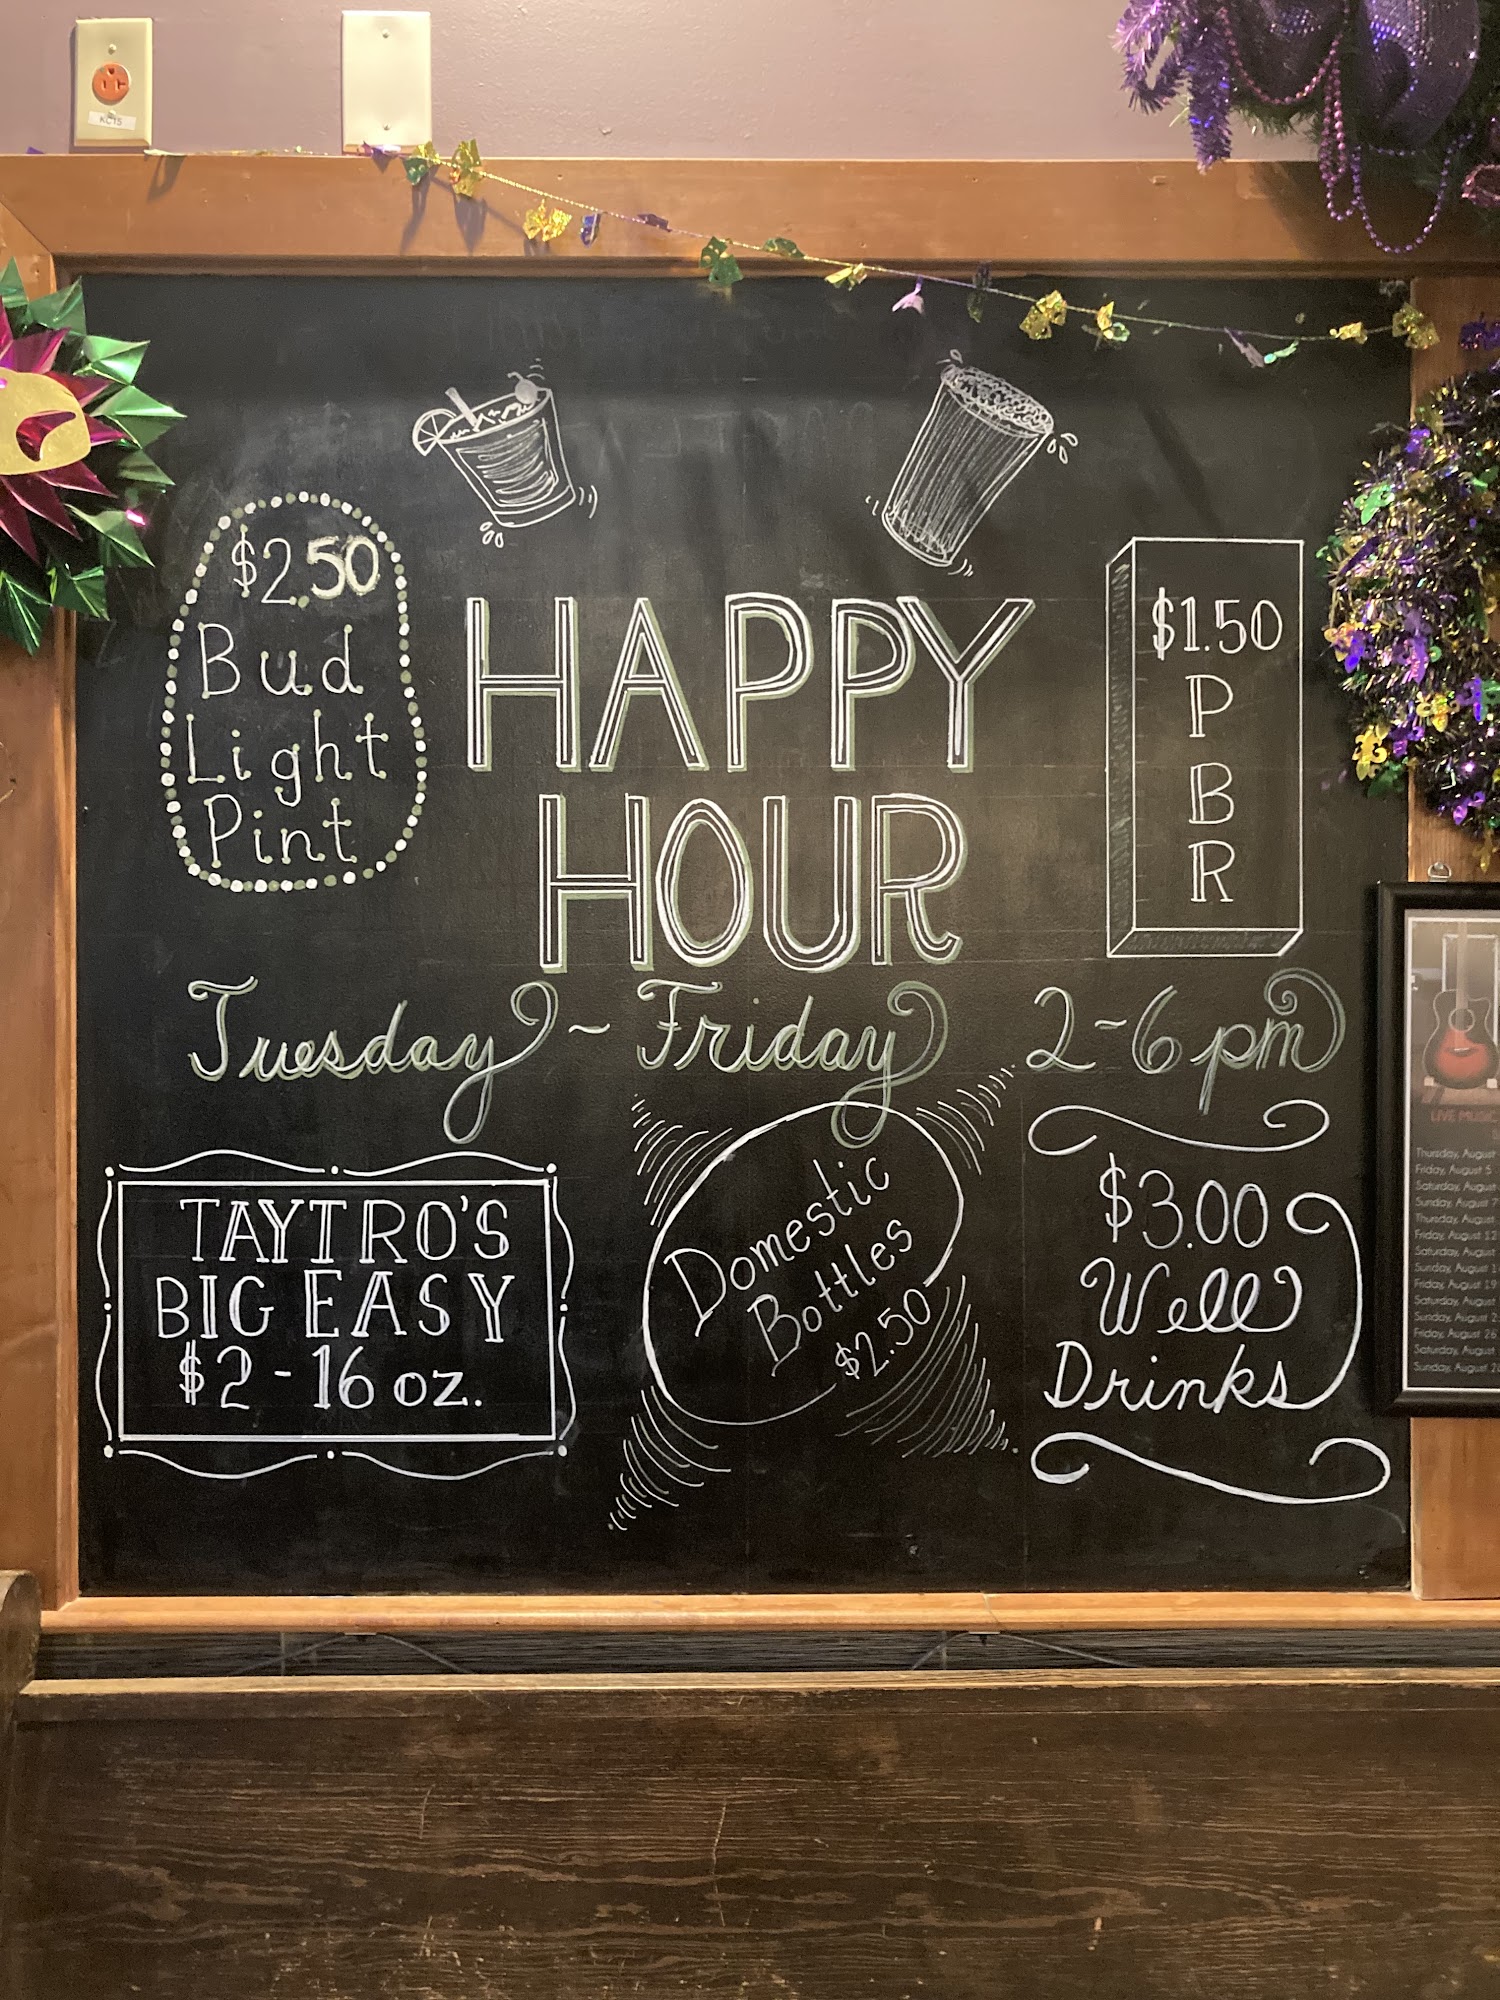 KC15
$2.50
Bud
Light
Pint
HAPPY
HOUR
$1.50
P
B
R
Tuesday - Friday 2-6pm
TAYTRO'S
BIG EASY
$2 - 16 oz.
Domestic
Bottles
$2.50
$3.00
Well
Drinks
LIVE MUSIC
Thursday, August
Friday, August 5
Saturday, August
Sunday, August 7
Thursday, August
Friday, August 12
Saturday, August
Sunday, August 1
Friday, August 19
Saturday, August
Sunday, August 2
Friday, August 26
Saturday, August
Sunday, August 2